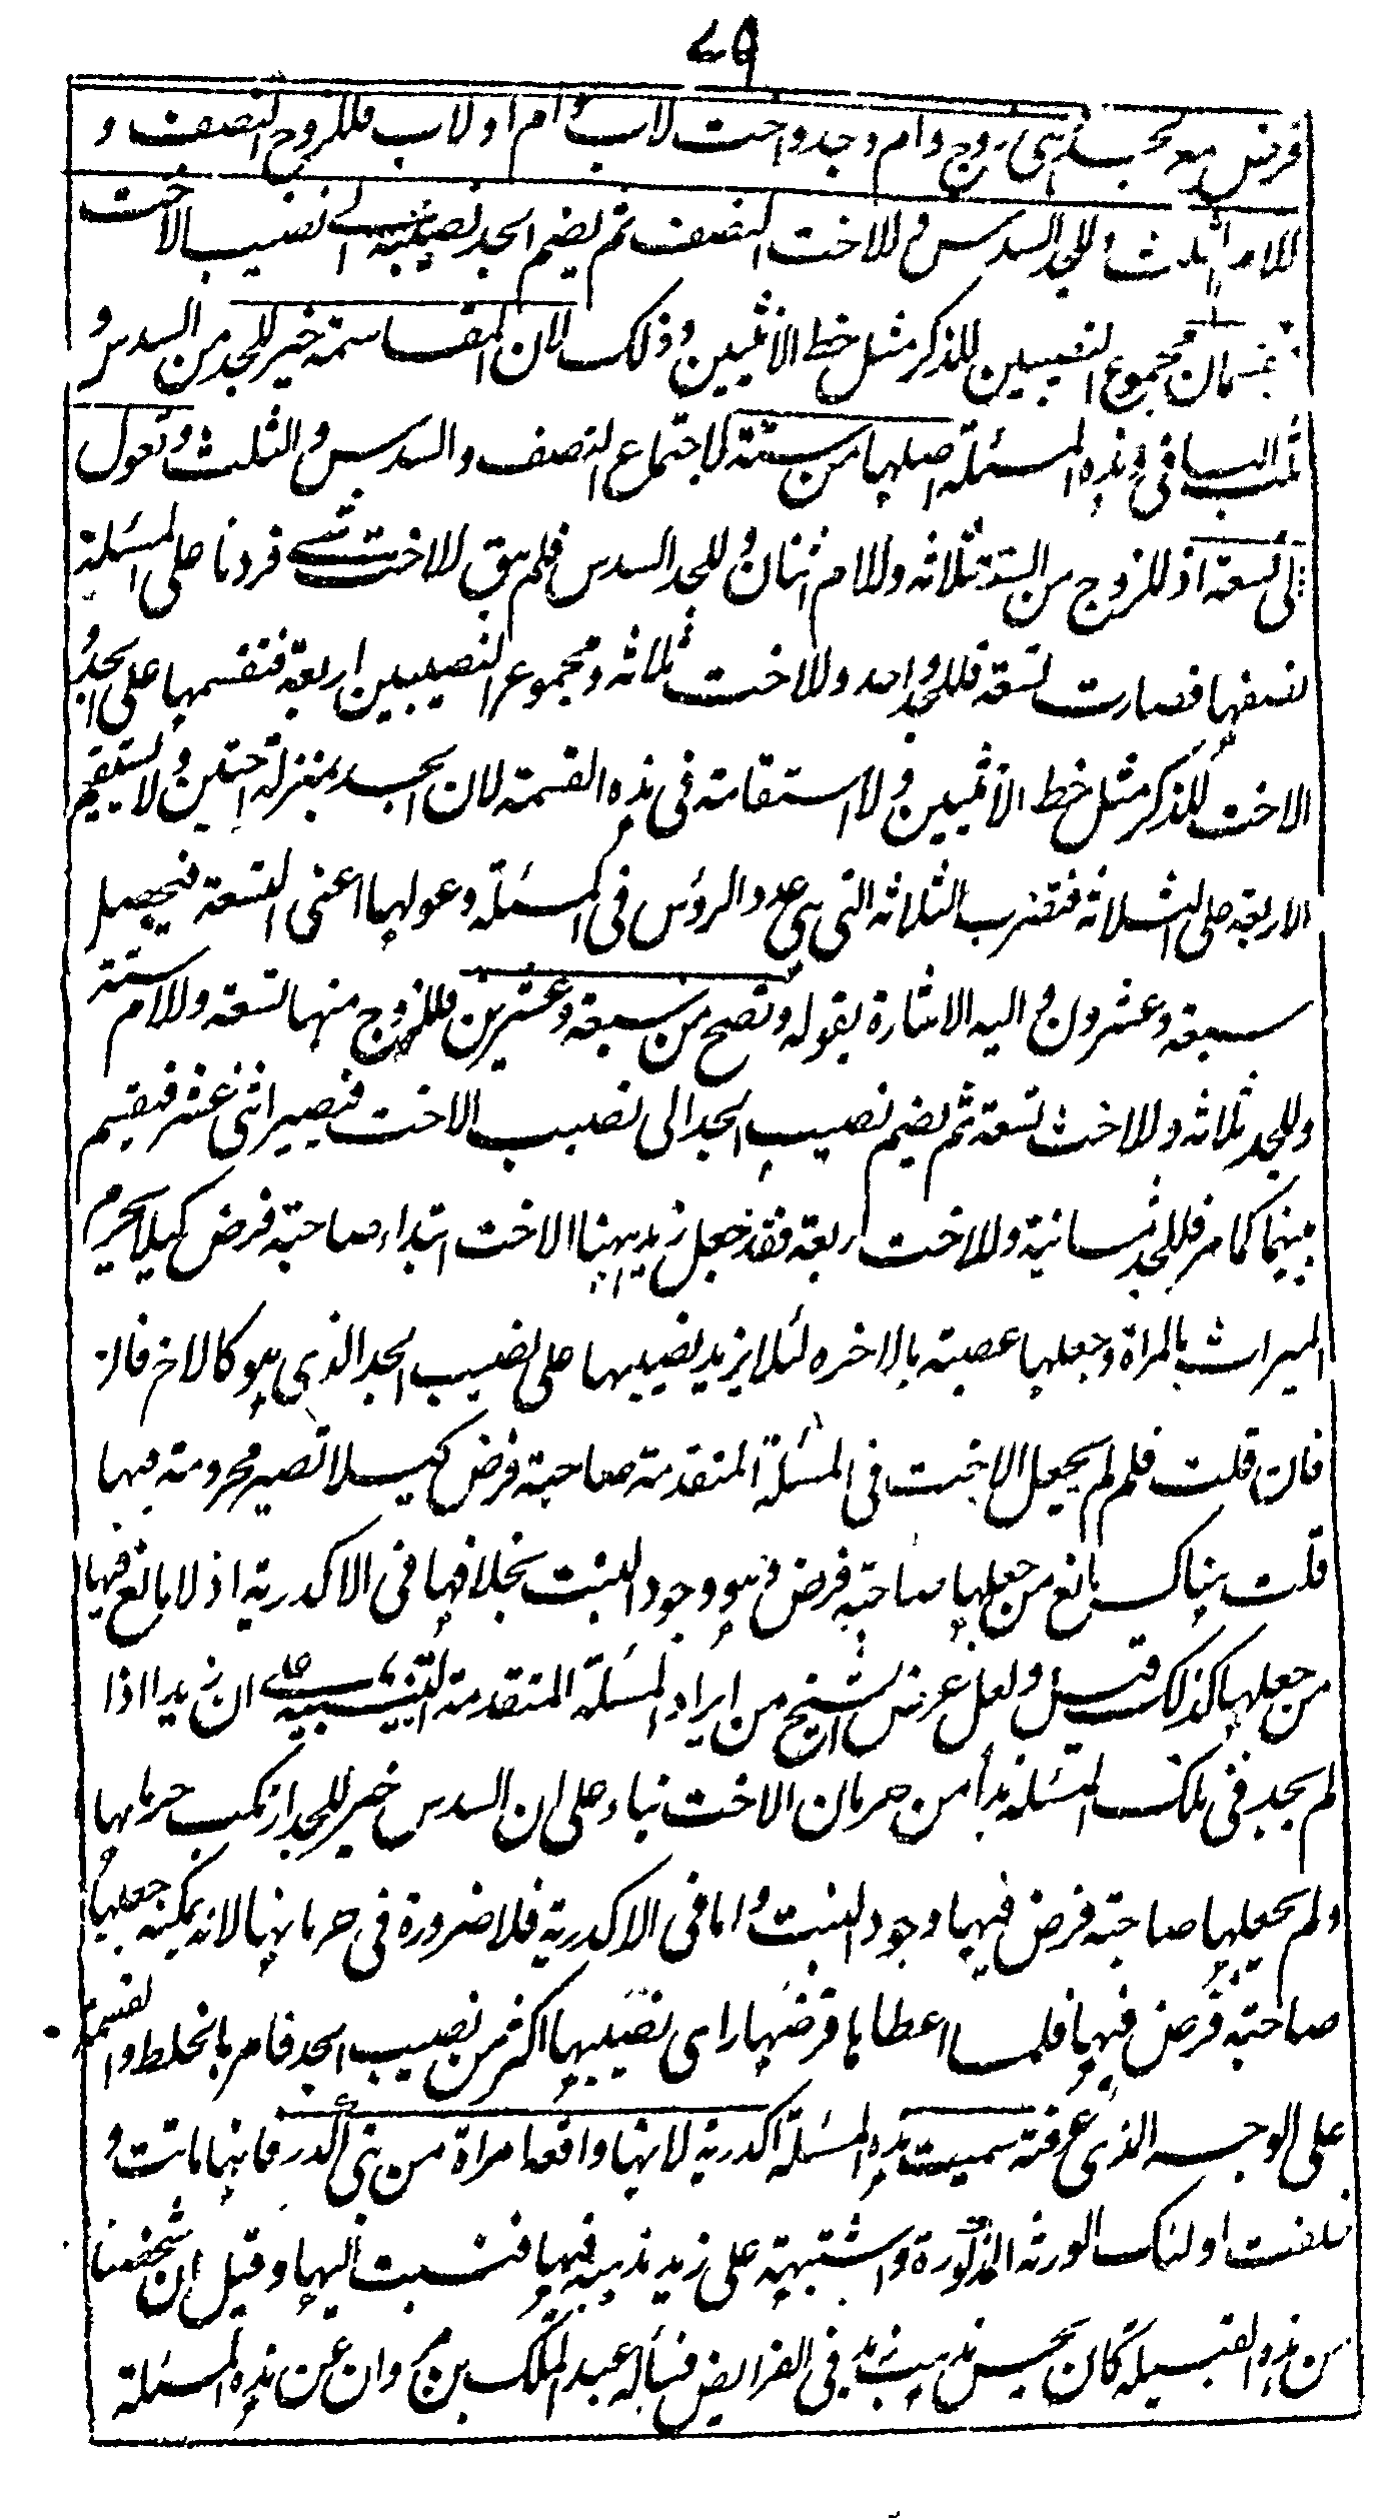 ۷۹
فرض مع الجد هى زوج و ام و جد و اخت لاب و ام او لاب فللزوج النصف و
للام الثلث و للجد السدس و للاخت النصف ثم يضم الجد نصيبه الى نصيب الاخت
فيقسمان مجموع النصيبين للذكر مثل حظ الانثيين و ذلك لان المقاسمة خير للجد من السدس و
ثلث الباقى و هذه المسئلة اصلها من ستة لاجتماع النصف و السدس و الثلث و تعول
الى تسعة اذ للزوج من الستة ثلاثه و للام اثنان و للجد السدس فلم يبق للاخت شے فزدنا على المسئلة
نصفها فصارت تسعة فللجد واحد و للاخت ثلاثه و مجموع النصيبين اربعة فنقسمها على الجد و
الاخت للذكر مثل حظ الانثيين و لا استقامة فى هذه القسمة لان الجد بمنزلة اختين و لا تستقيم
الاربعة على الثلاثة فنضرب الثلاثه التى هى عدد الرؤس فى المسئلة و عولها اعنى التسعة فيحصل
سبعة و عشرون و اليه الاشارة بقوله و تصح من سبعة و عشرين فللزوج منها تسعة و للام ستة
و للجد ثلاثه و للاخت تسعة ثم يضم نصيب الجد الى نصيب الاخت فيصير اثنى عشر فيقسم
بينهما كما مر فللجد ثمانية و للاخت اربعة فقد جعل زيد ههنا الاخت ابتداء صاحبة فرض كيلا تحرم
الميراث بالمراة و جعلها عصبة بالاخره لئلا يزيد نصيبها على نصيب الجد الذى هو كالاخ
فان قلت فلم لم يجعل الاخت فى المسئلة المتقدمة صاحبة فرض كيلا تصير محرومة فيها
قلت هناك مانع من جعلها صاحبة فرض و هو وجود البنت بخلافها فى الاكدرية اذ لا مانع فيها
من جعلها كذلك قيل و لعل غرض الشيخ من ايراد المسئلة المتقدمة التنبيه على ان زيدا اذا
لم يجد فى تلك المسئلة بدأ من حرمان الاخت بناء على ان السدس خير للجد ارتكب حرمانها
و لم يجعلها صاحبة فرض فيها لوجود البنت و اما فى الاكدرية فلا ضرورة فى حرمانها لانه يمكنه جعلها
صاحبة فرض فيها فلما اعطاها فرضها راى نصيبها اكثر من نصيب الجد فامر بالخلط و القسمة
على الوجه الذى عرفته سميت هذه المسئلة اكدرية لانها واقعة امراة من بنى اكدر فانها ماتت و
خلفت اولئك الورثة المذكورة و اشتبه على زيد مذهبه فيها فنسبت اليها و قيل ان شخصا
من هذه القبيلة كان يحسن مذهب زيد فى الفرايض فسأله عبد الملك بن مروان عن هذه المسئلة